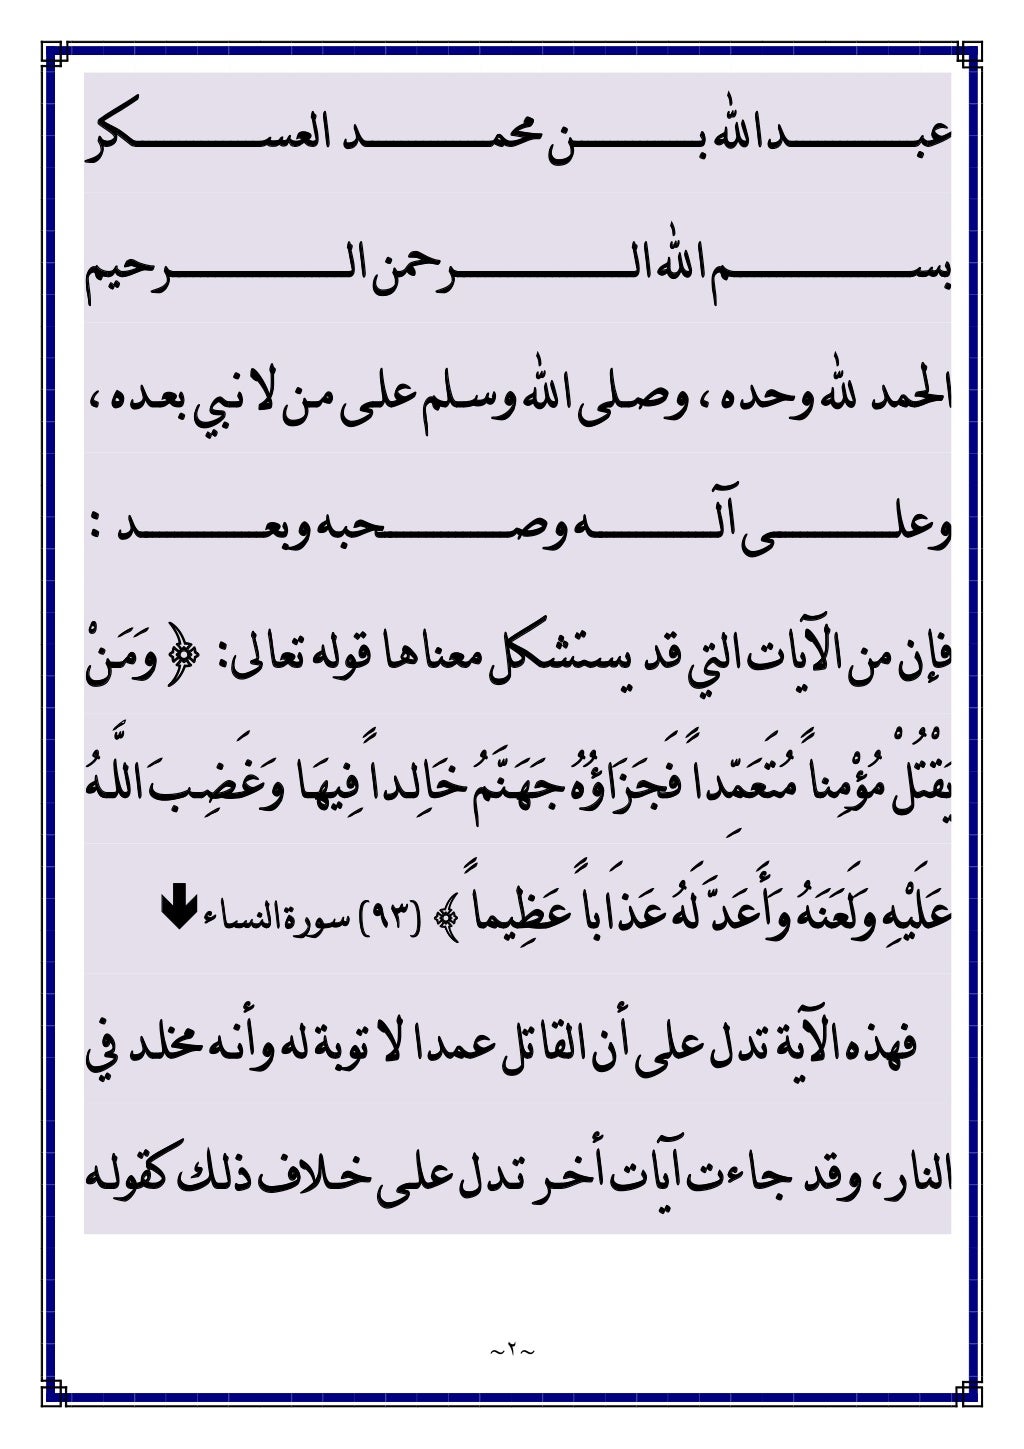 عبدالله بن محمد العسكر
بسم الله الرحمن الرحيم
الحمد لله وحده ، وصلى الله وسلم على من لا نبي بعده ،
وعلى آله وصحبه وبعد :
فإن من الآيات التي قد يستشكل معناها قوله تعالى: ﴿ وَمَنْ
يَقْتُلْ مُؤْمِناً مُتَعَمِّداً فَجَزَاؤُهُ جَهَنَّمُ خَالِداً فِيهَا وَغَضِبَ اللَّهُ
عَلَيْهِ وَلَعَنَهُ وَأَعَدَّ لَهُ عَذَاباً عَظِيماً ﴾ (٩٣) سورة النساء
فهذه الآية تدل على أن القاتل عمدا لا توبة له وأنه مخلد في
النار ، وقد جاءت آيات أخر تدل على خلاف ذلك كقوله
~٢~